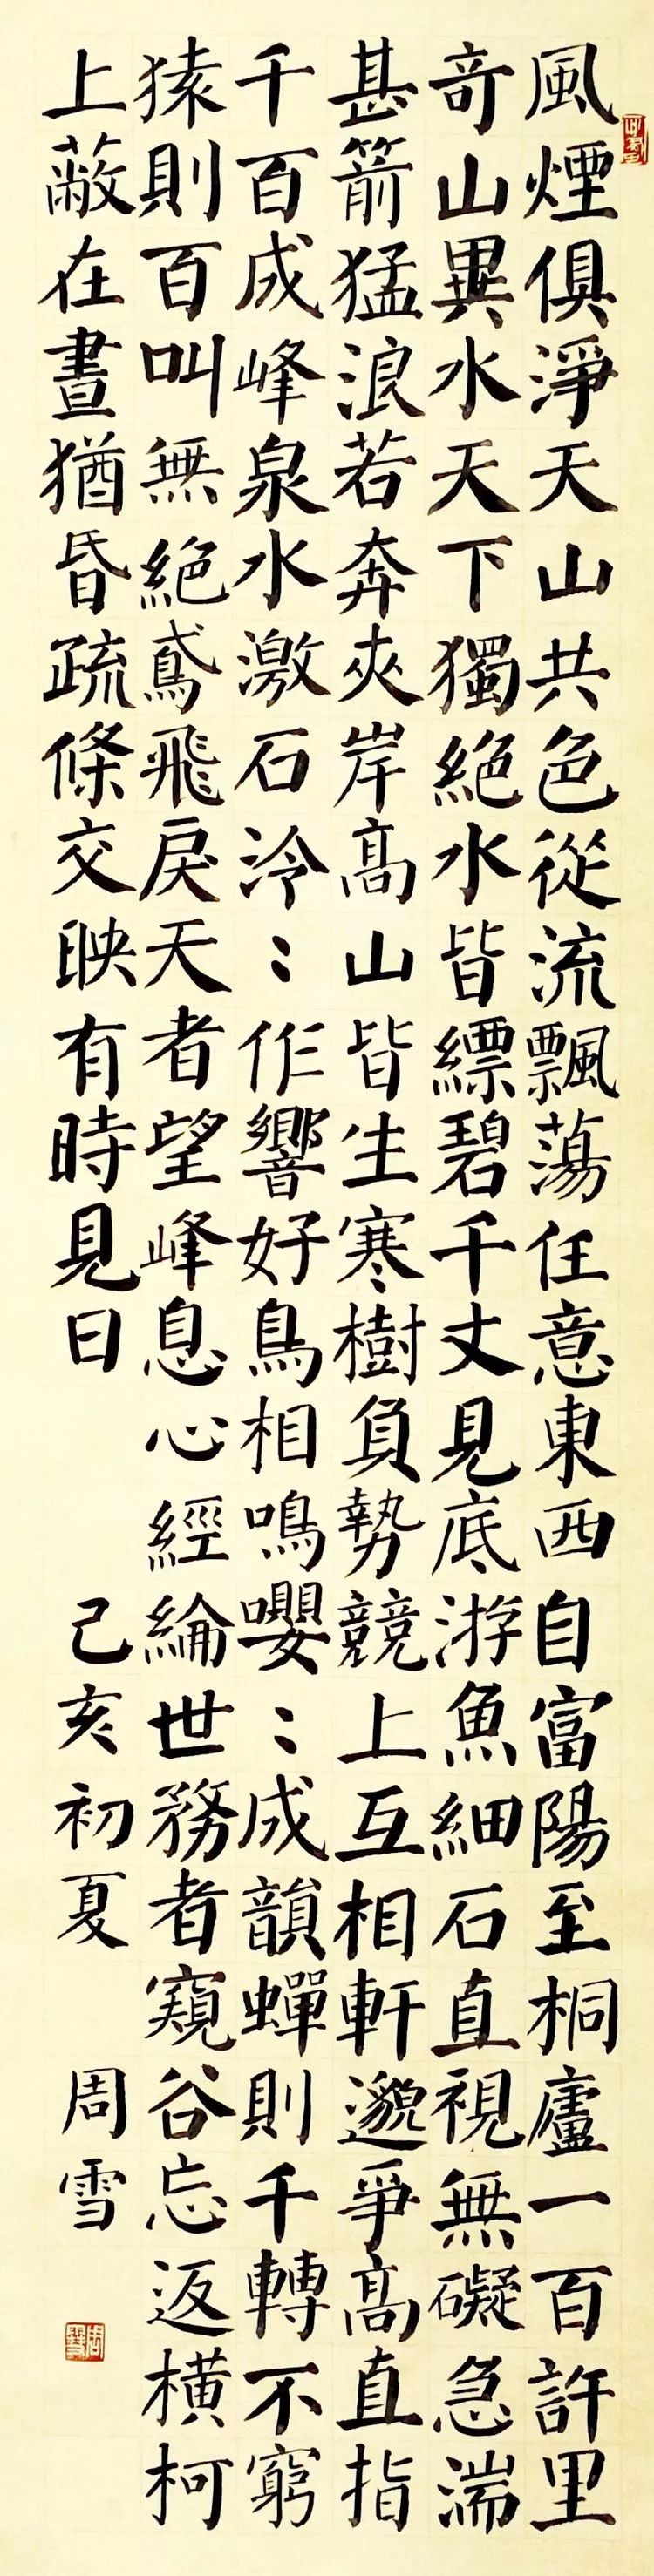 風煙俱淨天山共色從流飄蕩任意東西自富陽至桐廬一百許里
奇山異水天下獨絕水皆縹碧千丈見底游魚細石直視無礙急湍
甚箭猛浪若奔夾岸高山皆生寒樹負勢競上互相軒邈爭高直指
千百成峰泉水激石泠〻作響好鳥相鳴嚶〻成韻蟬則千轉不窮
猿則百叫無絕鳶飛戾天者望峰息心經綸世務者窺谷忘返橫柯
上蔽在晝猶昏疏條交映有時見日
己亥初夏 周雪
周雪